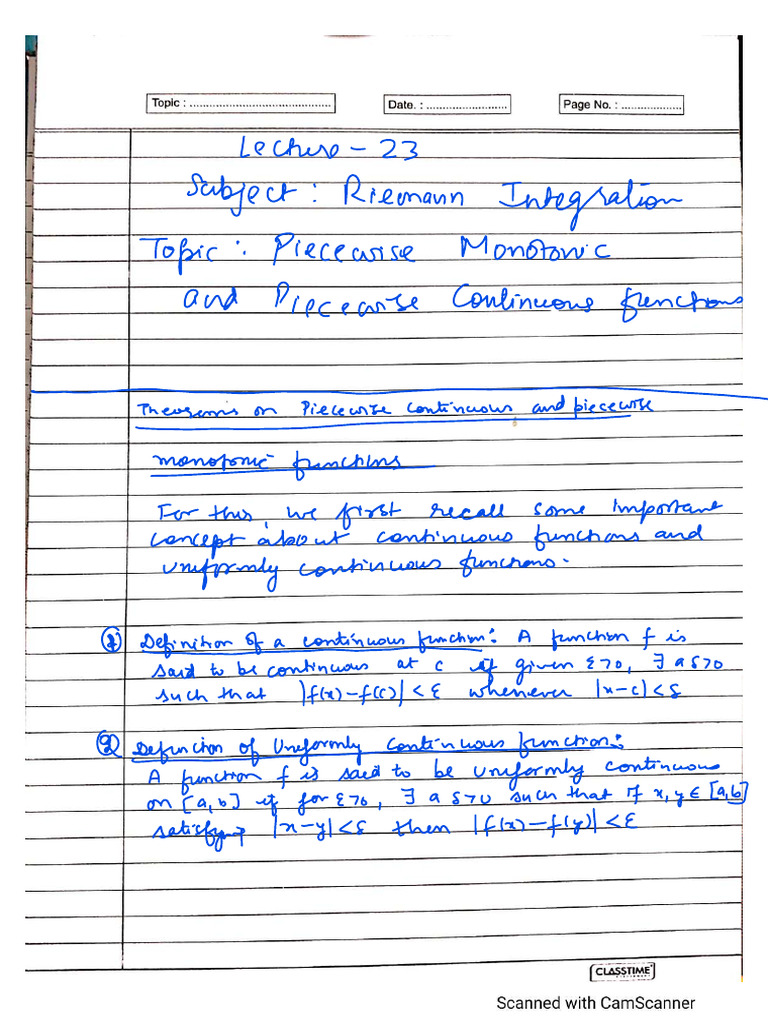 Topic : ............................................
Date. : ........................
Page No. : ..................
Lecture - 23
Subject : Riemann Integration
Topic : Piecewise Monotonic
and Piecewise Continuous functions
Theorems on Piecewise continuous and piecewise
monotonic functions
For this, we first recall some important
concept about continuous functions and
uniformly continuous functions.
(1) Definition of a continuous function: A function f is
said to be continuous at c if given ε>0, ∃ a δ>0
such that |f(x)-f(c)| < ε whenever |x-c| < δ
(2) Definition of Uniformly Continuous function:
A function f is said to be uniformly continuous
on [a,b] if for ε>0, ∃ a δ>0 such that if x, y ∈ [a,b]
satisfying |x-y| < δ then |f(x)-f(y)| < ε
CLASSTIME
Scanned with CamScanner